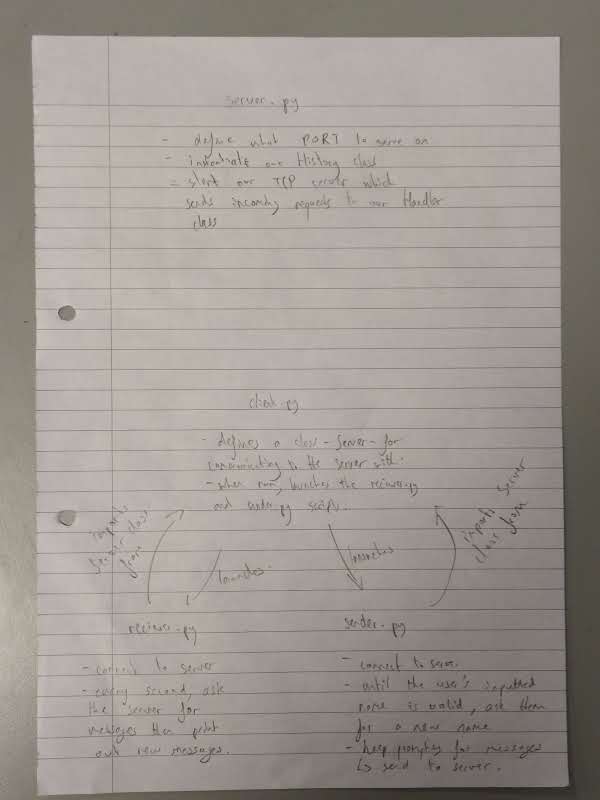 server.py
- define what PORT to serve on
- instantiate our History class
- start our TCP server which
sends incoming requests to our Handler
class
client.py
- defines a class - Server - for
communicating to the server with.
- when run, launches the reciever.py
and sender.py scripts.
imports
Server class
from
launches
launches
imports Server
class from
reciever.py
- connect to server
- every second, ask
the server for
messages then print
out new messages.
sender.py
- connect to server.
- until the user's inputted
name is valid, ask them
for a new name
- keep prompting for messages
↳ send to server.